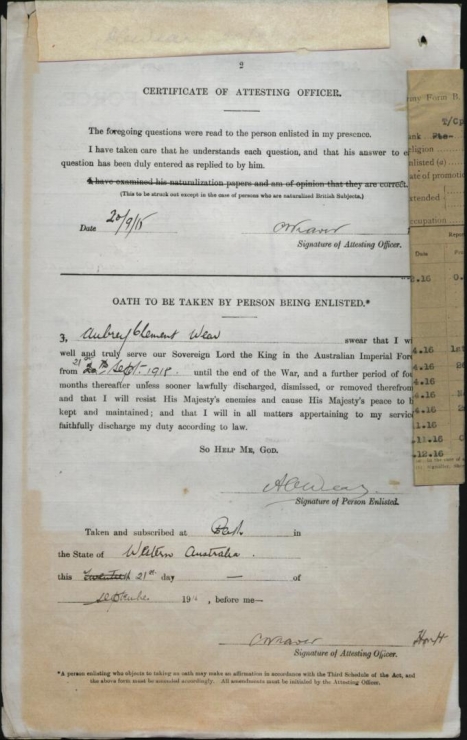 2
CERTIFICATE OF ATTESTING OFFICER.
The foregoing questions were read to the person enlisted in my presence.
I have taken care that he understands each question, and that his answer to e
question has been duly entered as replied to by him.
I have examined his naturalization papers and am of opinion that they are correct.
(This to be struck out except in the case of persons who are naturalized British Subjects.)
Date 20/9/15
Signature of Attesting Officer.
OATH TO BE TAKEN BY PERSON BEING ENLISTED.*
I, Aubrey Clement Wear swear that I wi
well and truly serve our Sovereign Lord the King in the Australian Imperial Forc
from 21 Sept. until the end of the War, and a further period of fou
months thereafter unless sooner lawfully discharged, dismissed, or removed therefrom
and that I will resist His Majesty's enemies and cause His Majesty's peace to b
kept and maintained; and that I will in all matters appertaining to my servic
faithfully discharge my duty according to law.
SO HELP ME, GOD.
A C Wear
Signature of Person Enlisted.
Taken and subscribed at in
the State of Western Australia.
this Twentieth 21st day — of
September 191 , before me—
Signature of Attesting Officer.
*A person enlisting who objects to taking an oath may make an affirmation in accordance with the Third Schedule of the Act, and
the above form must be amended accordingly. All amendments must be initialed by the Attesting Officer.
my Form B.
T/Cp
ank Pte
ligion
nlisted (a)
ate of promotio
xtended
ccupation
Date
.16
4.16
4.16
4.16
4.16
.16
.16
.16